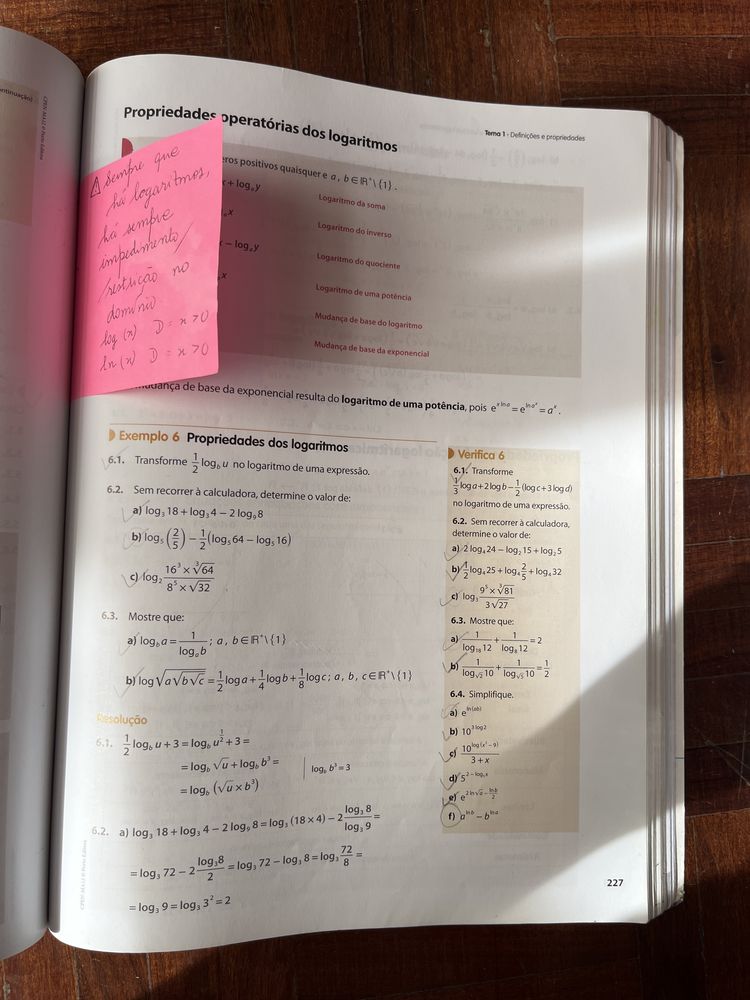 ontinuação)
Tema 1 - Definições e propriedades
Propriedades operatórias dos logaritmos
⚠ Sempre que
há logaritmos,
há sempre
impedimento/
/restrição no
domínio
log (x) D = x > 0
ln (x) D = x > 0
eros positivos quaisquer e a, b ∈ ℝ⁺\{1}.
x + logₐ y
Logaritmo da soma
ₐ x
Logaritmo do inverso
− logₐ y
Logaritmo do quociente
x
Logaritmo de uma potência
Mudança de base do logaritmo
Mudança de base da exponencial
mudança de base da exponencial resulta do logaritmo de uma potência, pois e^(x ln a) = e^(ln a^x) = a^x.
Exemplo 6 Propriedades dos logaritmos
6.1. Transforme 1/2 log_b u no logaritmo de uma expressão.
6.2. Sem recorrer à calculadora, determine o valor de:
a) log₃ 18 + log₃ 4 − 2 log₉ 8
b) log₅ (2/5) − 1/2 (log₅ 64 − log₅ 16)
c) log₂ (16³ × ∛64)/(8⁵ × √32)
6.3. Mostre que:
a) log_b a = 1/(logₐ b); a, b ∈ ℝ⁺\{1}
b) log √(a√(b√c)) = 1/2 log a + 1/4 log b + 1/8 log c; a, b, c ∈ ℝ⁺\{1}
Resolução
6.1. 1/2 log_b u + 3 = log_b u^(1/2) + 3 =
= log_b √u + log_b b³ = | log_b b³ = 3
= log_b (√u × b³)
6.2. a) log₃ 18 + log₃ 4 − 2 log₉ 8 = log₃ (18 × 4) − 2 (log₃ 8)/(log₃ 9) =
= log₃ 72 − 2 (log₃ 8)/2 = log₃ 72 − log₃ 8 = log₃ 72/8 =
= log₃ 9 = log₃ 3² = 2
Verifica 6
6.1. Transforme
1/3 log a + 2 log b − 1/2 (log c + 3 log d)
no logaritmo de uma expressão.
6.2. Sem recorrer à calculadora,
determine o valor de:
a) 2 log₄ 24 − log₂ 15 + log₂ 5
b) 1/2 log₄ 25 + log₄ 2/5 + log₄ 32
c) log₃ (9⁵ × ∛81)/(3√27)
6.3. Mostre que:
a) 1/(log₁₈ 12) + 1/(log₈ 12) = 2
b) 1/(log_√2 10) + 1/(log_√5 10) = 1/2
6.4. Simplifique.
a) e^(ln(ab))
b) 10^(3 log 2)
c) 10^(log (x² − 9))/(3 + x)
d) 5^(2 − log₅ x)
e) e^(2 ln √a − (ln b)/2)
f) a^(ln b) − b^(ln a)
227